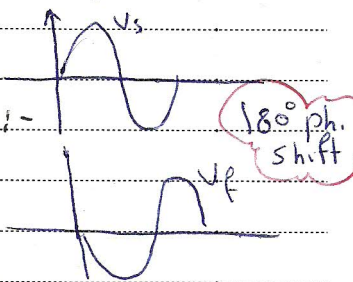 Vs
:-
180° ph.
shift
Vf